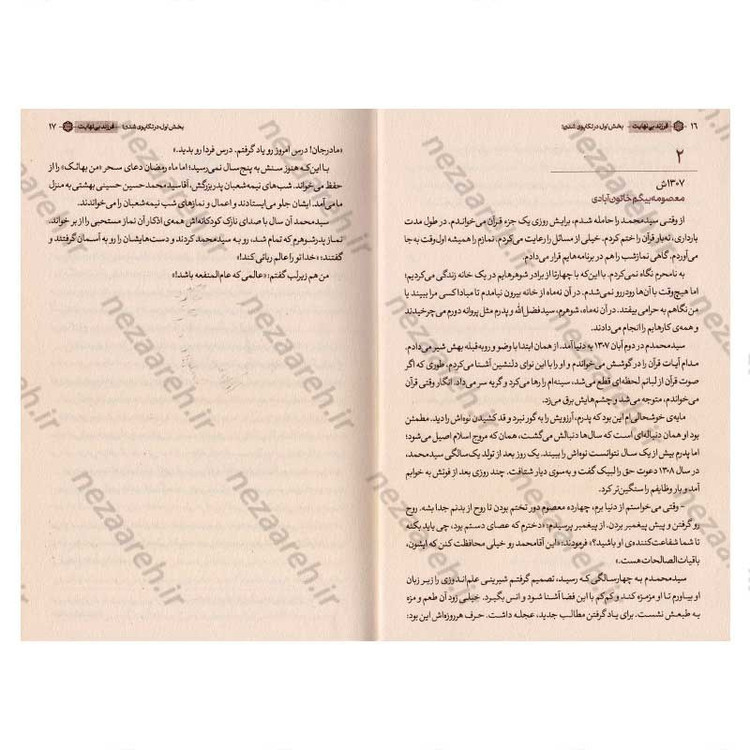 ۱۶ فرزند بی‌نهایت بخش اول: در تکاپوی شدن؛
۲
۱۳۰۷ش
معصومه بیگم خاتون‌آبادی
از وقتی سیدمحمد را حامله شدم، برایش روزی یک جزء قرآن می‌خواندم. در طول مدت
بارداری، نه‌بار قرآن را ختم کردم. خیلی از مسائل را رعایت می‌کردم. نمازم را همیشه اول‌وقت به جا
می‌آوردم. گاهی نمازشب را هم در برنامه‌هایم قرار می‌دادم.
به نامحرم نگاه نمی‌کردم. با این‌که با چهارتا از برادر شوهرهایم در یک خانه زندگی می‌کردیم؛
اما هیچ‌وقت با آن‌ها رودررو نمی‌شدم. در آن نه‌ماه از خانه بیرون نیامدم تا مبادا کسی مرا ببیند یا
من نگاهم به حرامی بیفتد. در آن نه‌ماه، شوهرم، سیدفضل‌الله و پدرم مثل پروانه دورم می‌چرخیدند
و همه‌ی کارهایم را انجام می‌دادند.
سیدمحمدم در دوم آبان ۱۳۰۷ به دنیا آمد. از همان ابتدا با وضو و روبه‌قبله بهش شیر می‌دادم.
مدام آیات قرآن را در گوشش می‌خواندم و او را با این نوای دلنشین آشنا می‌کردم. طوری که اگر
صوت قرآن از لبانم لحظه‌ای قطع می‌شد، سینه‌ام را رها می‌کرد و گریه سر می‌داد. انگار وقتی قرآن
می‌خواندم، متوجه می‌شد و چشم‌هایش برق می‌زد.
مایه‌ی خوشحالی‌ام این بود که پدرم، آرزویش را به گور نبرد و قد کشیدن نوه‌اش را دید. مطمئن
بود او همان دنباله‌ای است که سال‌ها دنبالش می‌گشت، همان که مروج اسلام اصیل می‌شود؛
اما پدرم بیش از یک سال نتوانست نوه‌اش را ببیند. یک روز بعد از تولد یک‌سالگی سیدمحمد،
در سال ۱۳۰۸ دعوت حق را لبیک گفت و به‌سوی دیار شتافت. چند روزی بعد از فوتش به خوابم
آمد و بار وظایفم را سنگین‌تر کرد.
- وقتی می‌خواستم از دنیا برم، چهارده معصوم دور تختم بودن تا روح از بدنم جدا بشه. روح
رو گرفتن و پیش پیغمبر بردن. از پیغمبر پرسیدم: «دخترم که عصای دستم بود، چی باید بکنه
تا شما شفاعت‌کننده‌ی او باشید؟» فرمودند: «این آقامحمد رو خیلی محافظت کنن که ایشون،
باقیات‌الصالحات هست.»
سیدمحمدم به چهارسالگی که رسید، تصمیم گرفتم شیرینی علم‌اندوزی را زیر زبان
او بیاورم تا او مزمزه کند و کم‌کم با این فضا آشنا شود و انس بگیرد. خیلی زود آن طعم و مزه
به طبعش نشست. برای یاد گرفتن مطالب جدید، عجله داشت. حرف هرروزه‌اش این بود:
بخش اول: در تکاپوی شدن؛ فرزند بی‌نهایت ۱۷
«مادرجان! درس امروز رو یاد گرفتم. درس فردا رو بدید.»
با این‌که هنوز سنش به پنج سال نمی‌رسید؛ اما ماه رمضان دعای سحر «من بهائک» را از
حفظ می‌خواند. شب‌های نیمه‌شعبان پدربزرگش، آقاسید محمد حسین حسینی بهشتی به منزل
ما می‌آمد. ایشان جلو می‌ایستادند و اعمال و نمازهای شب نیمه‌شعبان را می‌خواندند.
سیدمحمد آن سال با صدای نازک کودکانه‌اش همه‌ی اذکار آن نماز مستحبی را از بر خواند.
نماز پدرشوهرم که تمام شد، رو به سیدمحمد کردند و دست‌هایشان را رو به آسمان گرفتند و
گفتند: «خدا تو را عالم ربانی کند!»
من هم زیرلب گفتم: «عالمی که عام‌المنفعه باشد!»
nezaareh.ir
nezaareh.ir
nezaareh.ir
nezaareh.ir
nezaareh.ir
nezaareh.ir
nezaareh.ir
nezaareh.ir